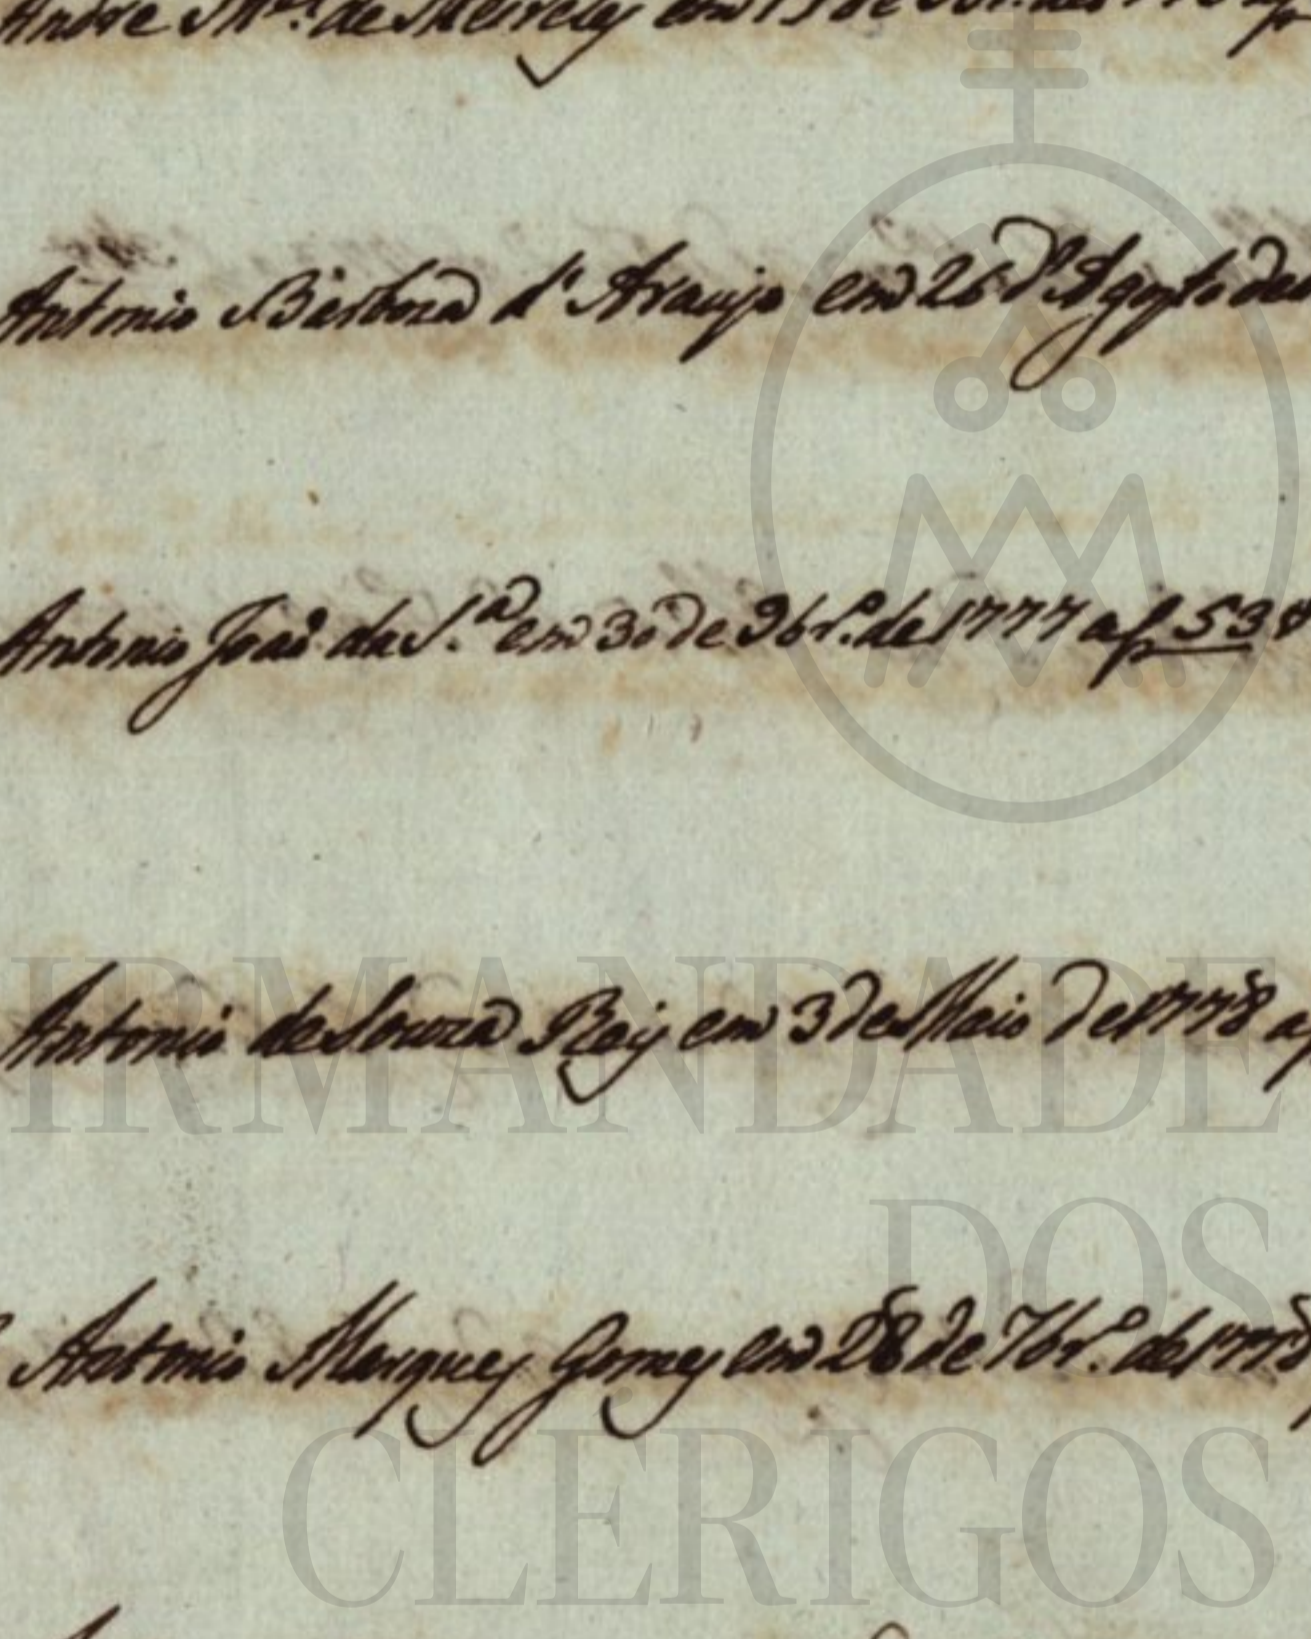 Andre
Antonio Barboza d' Araujo em 26 d' Agosto de
Antonio Joaõ da S.ª em 30 de 9br.º de 1777 a f 538
Antonio de Souza Reis em 3 de Maio de 1778 a f
Antonio Marques Gomes em 28 de 7br.º de 1778
IRMANDADE
DOS
CLERIGOS